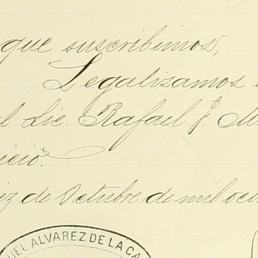 que suscribimos,
Legalizamos
Lic. Rafael F
icio.
ez de Octubre de mil oc
UEL ALVAREZ DE LA CA